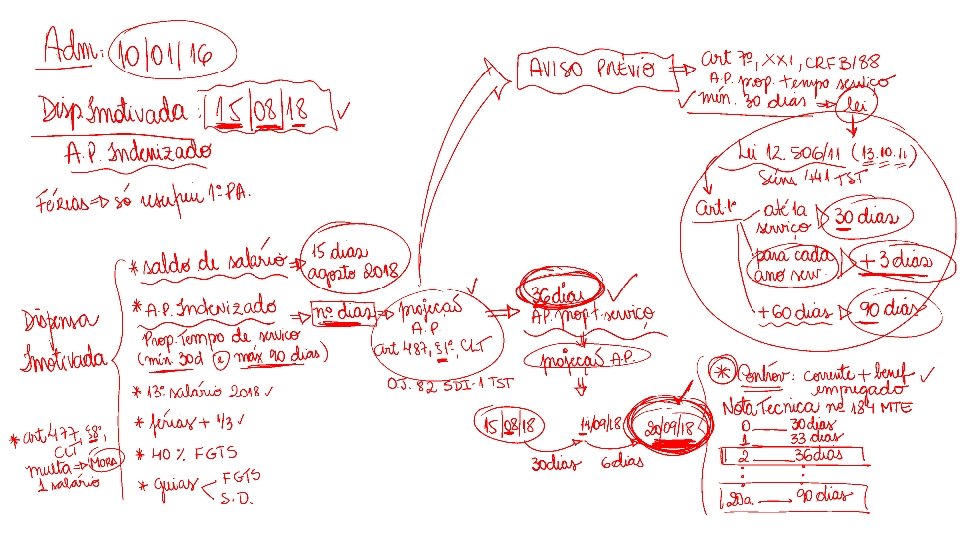 Adm: 10/01/16
Disp. Imotivada: 15/08/18 ✓
A.P. Indenizado
Férias => só usufruiu 1º PA.
Dispensa
Imotivada
* art 477, §8º,
CLT
multa => MORA
1 salário
* saldo de salário => 15 dias
agosto 2018
* A.P. Indenizado => nº dias => projeção
A.P
art 487, §1º, CLT
OJ. 82 SDI-1 TST
Prop. Tempo de serviço
(mín 30d e máx 90 dias)
* 13º salário 2018 ✓
* férias + 1/3 ✓
* 40% FGTS
* guias < FGTS
S.D.
AVISO PRÉVIO => art 7º, XXI, CRFB/88
A.P. prop. + tempo serviço
✓ mín. 30 dias => lei
Lei 12.506/11 (13.10.11)
Súm 441 TST
Art. 1º
até 1a
serviço
30 dias
para cada
ano serv.
+ 3 dias
+ 60 dias
90 dias
=> 36 dias ✓
A.P. prop. t. serviço
projeção A.P.
15/08/18
14/09/18
20/09/18
30 dias
6 dias
* Controv: corrente + benef ✓
empregado
Nota Tecnica nº 184 MTE
0 — 30 dias
1 — 33 dias
2 — 36 dias
: :
20a. — 90 dias